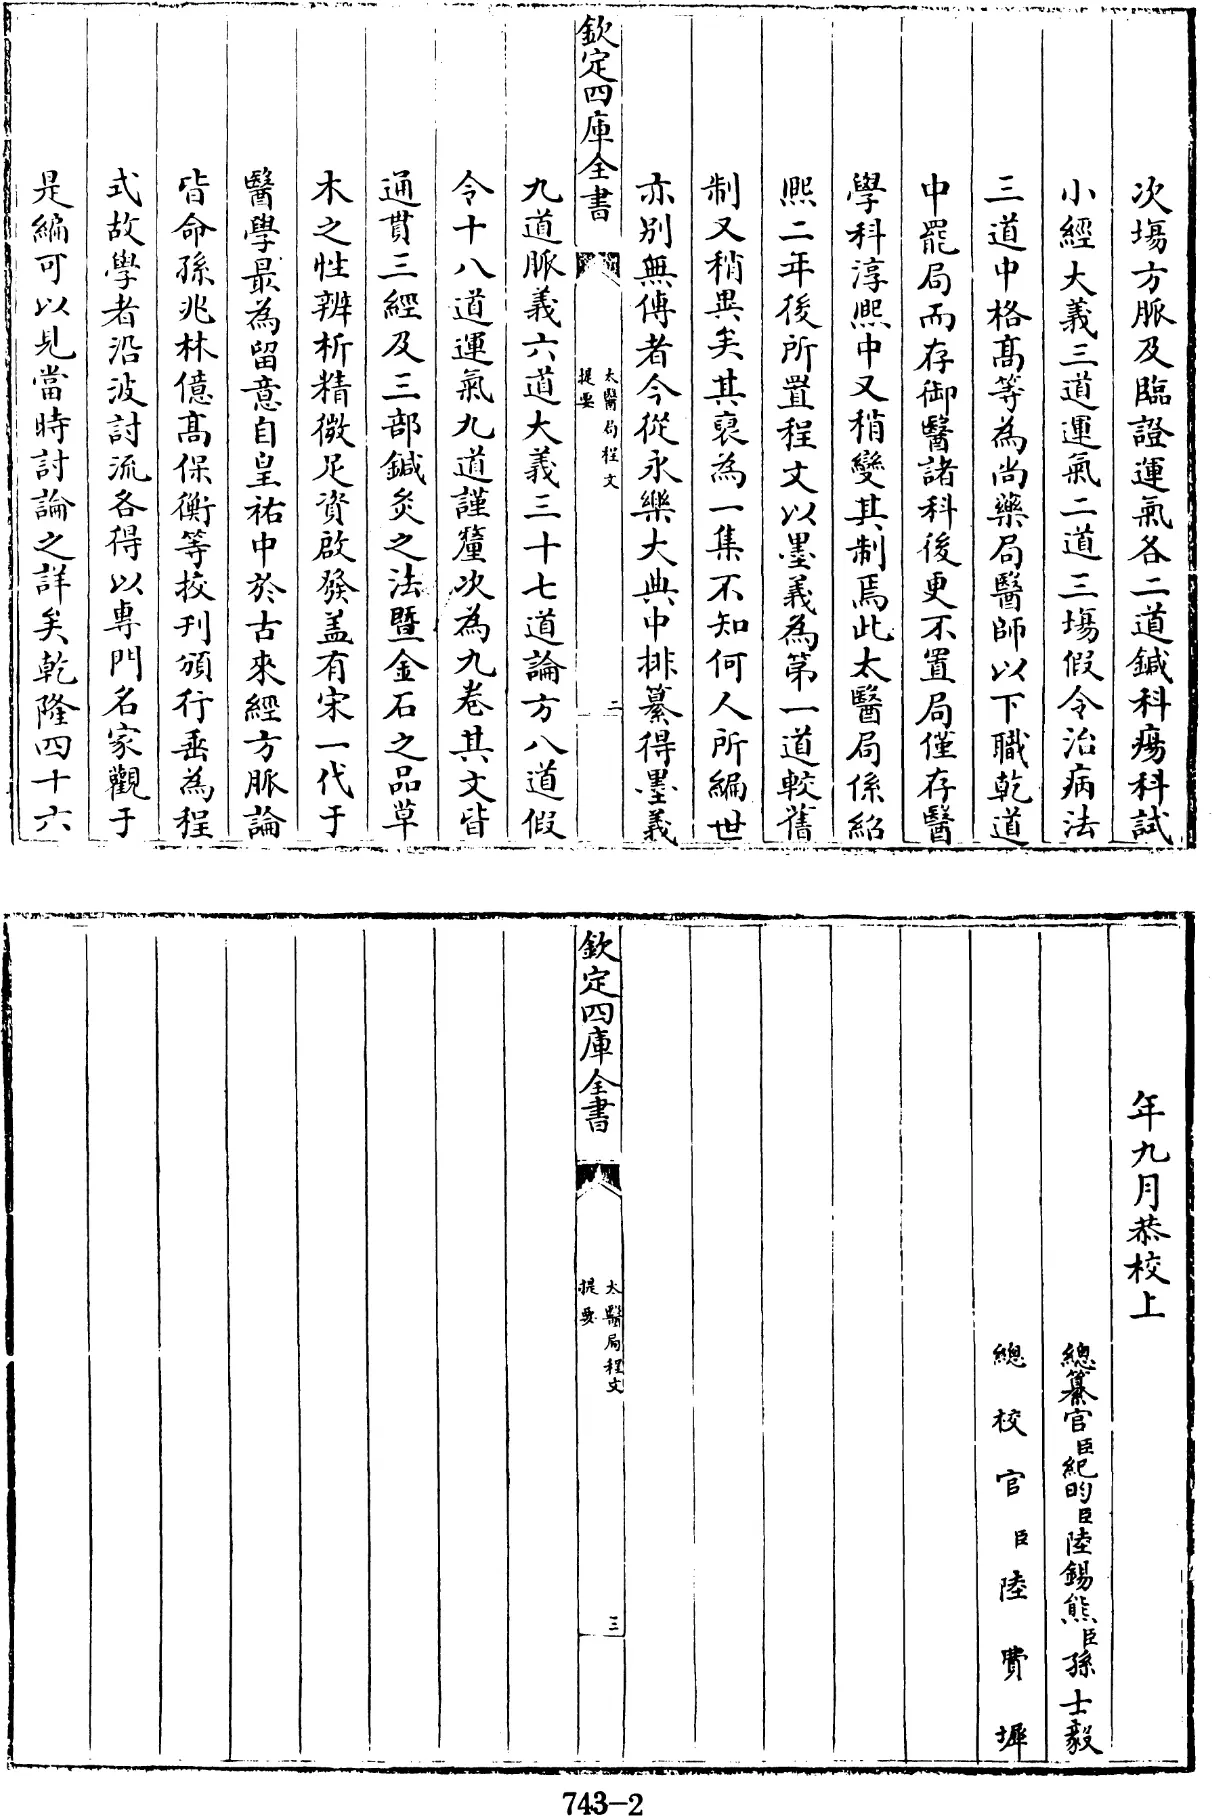 次塲方脈及臨證運氣各二道鍼科瘍科試
小經大義三道運氣二道三塲假令治病法
三道中格髙等為尚藥局醫師以下職乾道
中罷局而存御醫諸科後更不置局僅存醫
學科淳熈中又稍變其制焉此太醫局係紹
熈二年後所置程文以墨義為第一道較舊
制又稍異矣其裒為一集不知何人所編世
亦别無傳者今從永樂大典中排纂得墨義
欽定四庫全書
太醫局程文
提要
二
九道脈義六道大義三十七道論方八道假
令十八道運氣九道謹釐次為九卷其文皆
通貫三經及三部鍼灸之法暨金石之品草
木之性辨析精微足資啟發盖有宋一代于
醫學最為留意自皇祐中於古來經方脈論
皆命孫兆林億髙保衡等校刊頒行垂為程
式故學者沿波討流各得以專門名家觀于
是編可以見當時討論之詳矣乾隆四十六
年九月恭校上
總纂官臣紀昀臣陸錫熊臣孫士毅
總校官臣陸費墀
欽定四庫全書
太醫局程文
提要
三
743-2